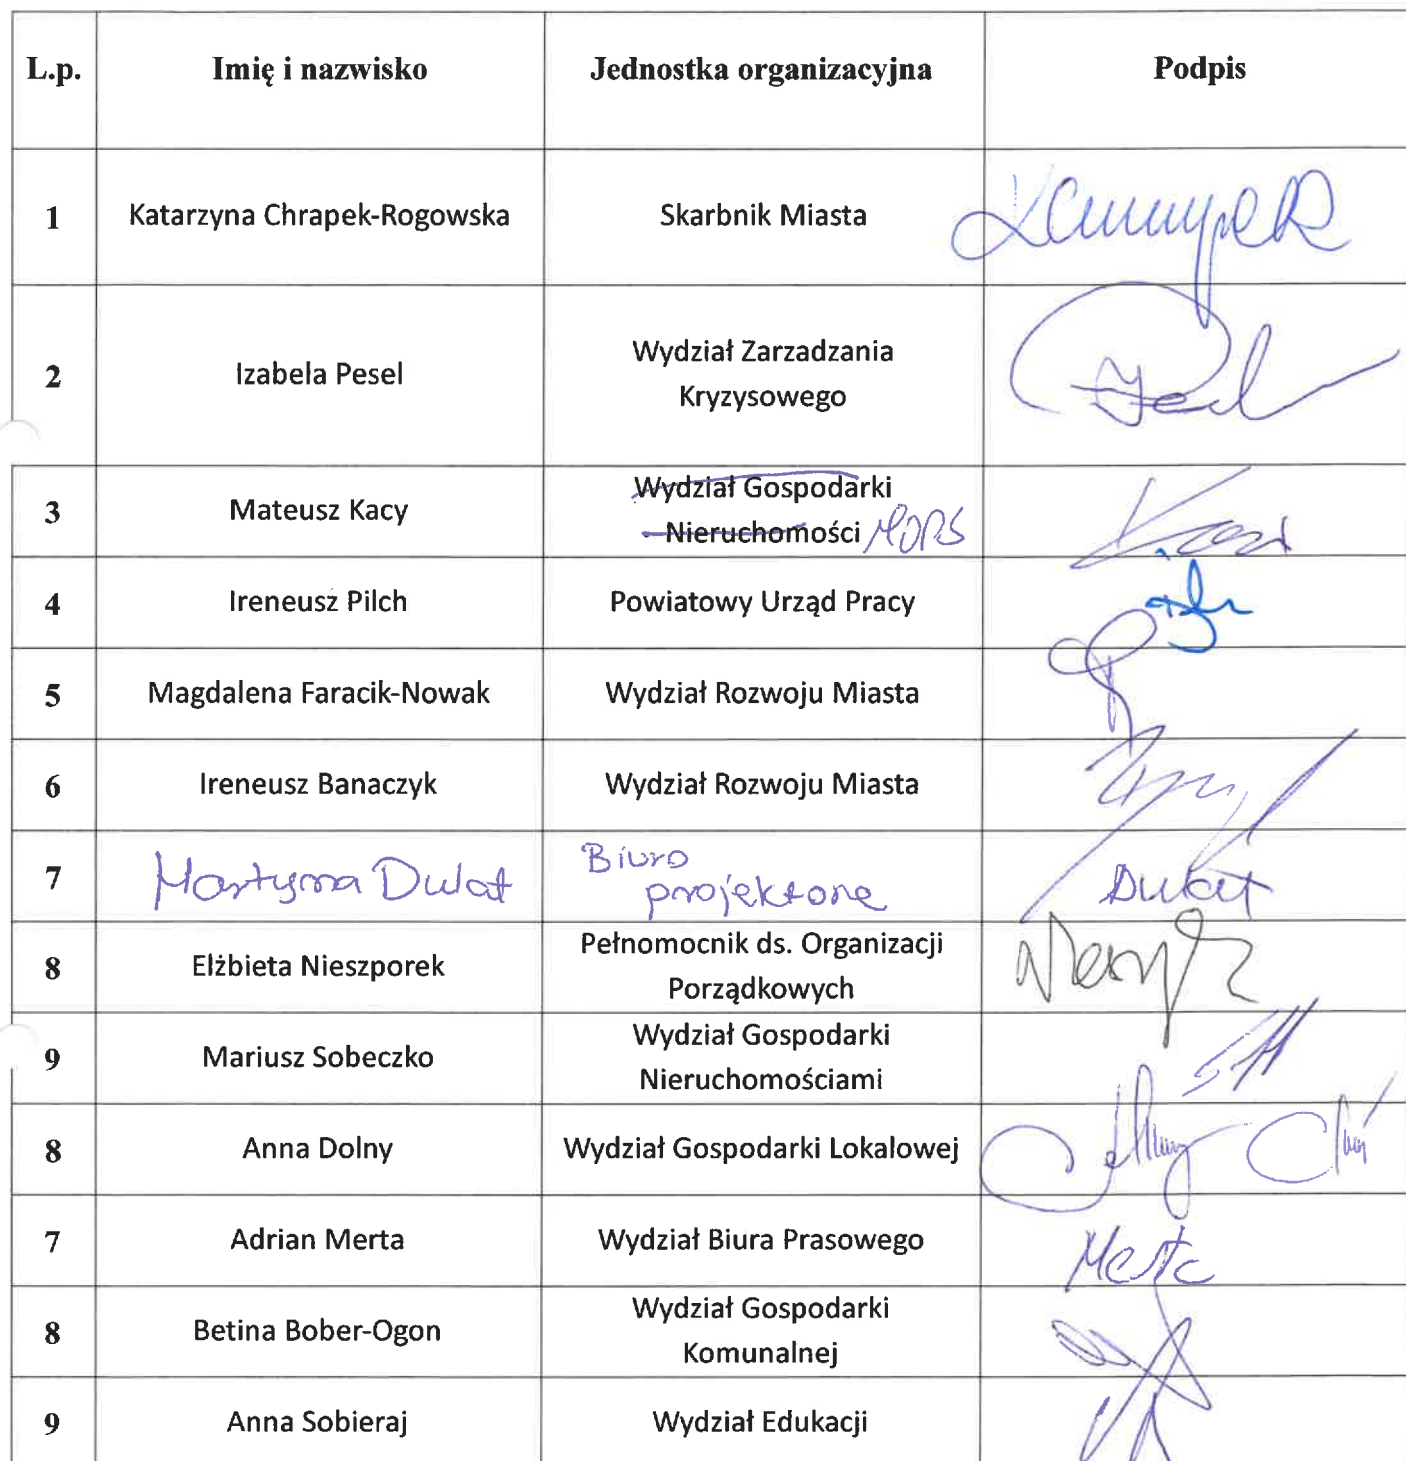 L.p. Imię i nazwisko Jednostka organizacyjna Podpis
1 Katarzyna Chrapek-Rogowska Skarbnik Miasta
2 Izabela Pesel Wydział Zarzadzania
Kryzysowego
3 Mateusz Kacy Wydział Gospodarki
Nieruchomości MOPS
4 Ireneusz Pilch Powiatowy Urząd Pracy
5 Magdalena Faracik-Nowak Wydział Rozwoju Miasta
6 Ireneusz Banaczyk Wydział Rozwoju Miasta
7 Martyna Dulat Biuro
projektone Dulat
8 Elżbieta Nieszporek Pełnomocnik ds. Organizacji
Porządkowych
9 Mariusz Sobeczko Wydział Gospodarki
Nieruchomościami
8 Anna Dolny Wydział Gospodarki Lokalowej
7 Adrian Merta Wydział Biura Prasowego Merta
8 Betina Bober-Ogon Wydział Gospodarki
Komunalnej
9 Anna Sobieraj Wydział Edukacji